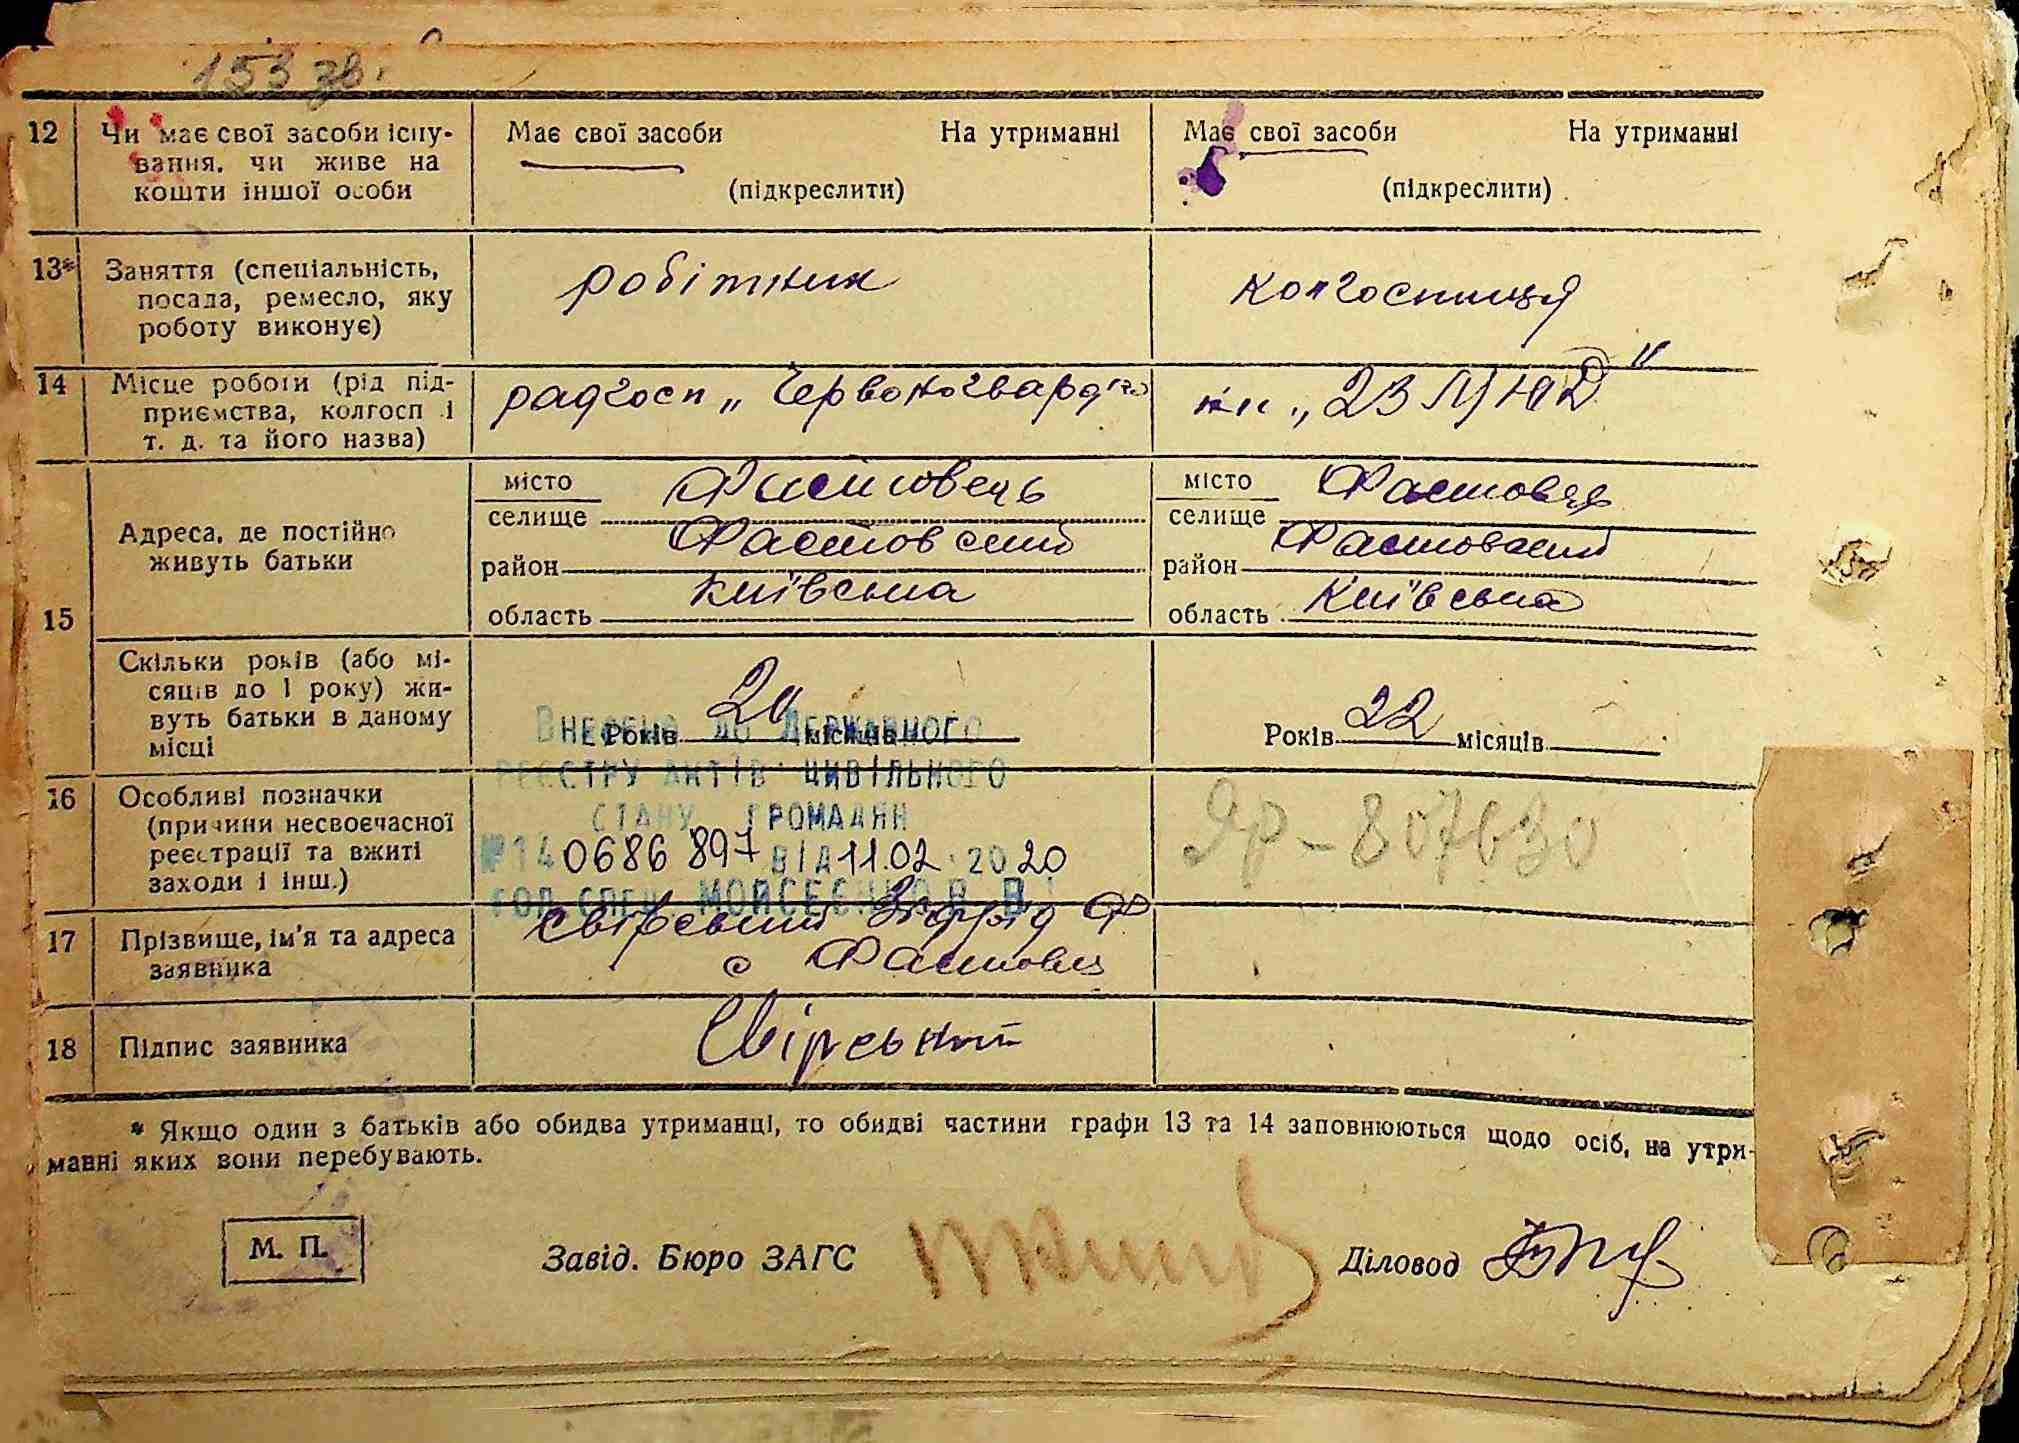 153 зв.
12 Чи має свої засоби існу- Має свої засоби На утриманні Має свої засоби На утриманні
вання, чи живе на
кошти іншої особи (підкреслити) (підкреслити)
13* Заняття (спеціальність, робітник колгоспниця
посада, ремесло, яку
роботу виконує)
14 Місце роботи (рід під- радгосп „Червоногвард кл. „23 МЮД"
приємства, колгосп і
т. д. та його назва)
15 Адреса, де постійно
живуть батьки
місто Фастовець місто Фастовець
селище селище
район Фастовский район Фастовский
область Київська область Київська
Скільки років (або мі-
сяців до 1 року) жи-
вуть батьки в даному
місці
Років 20 місяців Років 22 місяців
Внесено до Державного
реєстру актів цивільного
стану громадян
№ 140686897 від 11.02.2020
гол. спец. Мойсеєнко В.В.
16 Особливі позначки Яр-807630
(причини несвоєчасної
реєстрації та вжиті
заходи і інш.)
17 Прізвище, ім'я та адреса Свірський Ф
заявника с Фастовец
18 Підпис заявника Свірський
* Якщо один з батьків або обидва утриманці, то обидві частини графи 13 та 14 заповнюються щодо осіб, на утри-
манні яких вони перебувають.
М. П. Завід. Бюро ЗАГС Діловод